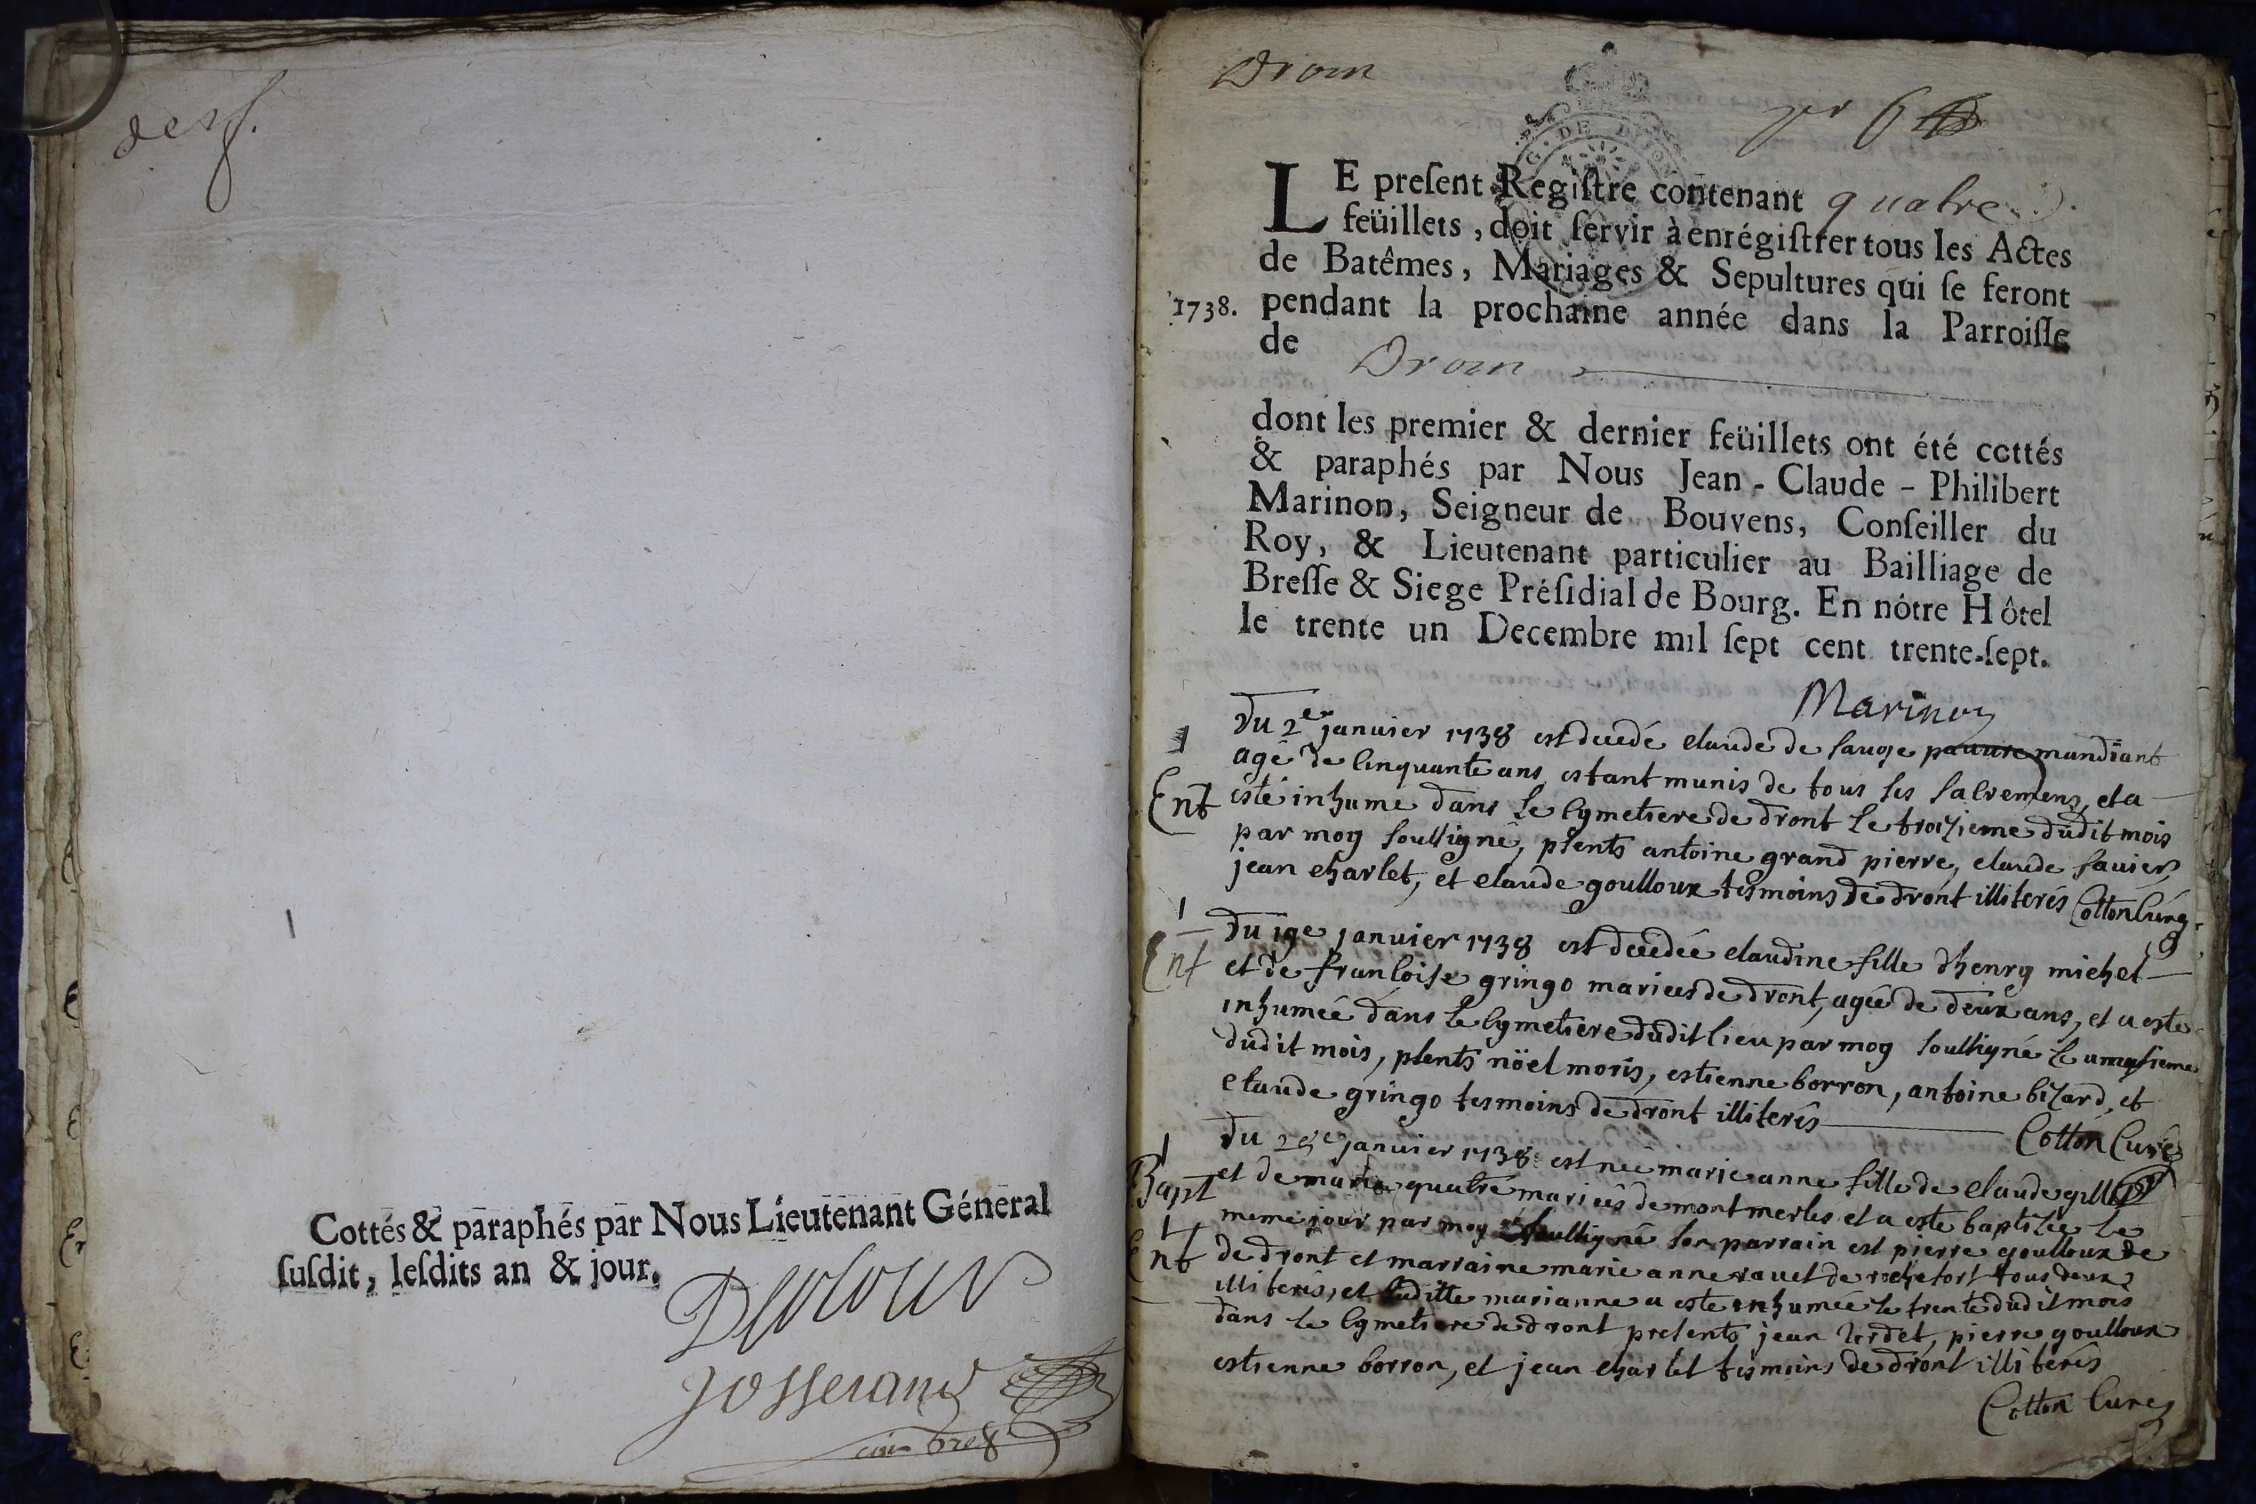 Cottés & paraphés par Nous Lieutenant Géneral
ſuſdit, leſdits an & jour.
Josserand
Drom
G. DE DIJON
per 6
LE preſent Regiſtre contenant quatre
feüillets, doit ſervir à enrégiſtrer tous les Actes
de Batêmes, Mariages & Sepultures qui ſe feront
1738. pendant la prochaine année dans la Parroiſſe
de Drom
dont les premier & dernier feüillets ont été cottés
& paraphés par Nous Jean-Claude-Philibert
Marinon, Seigneur de Bouvens, Conſeiller du
Roy, & Lieutenant particulier au Bailliage de
Breſſe & Siege Préſidial de Bourg. En nôtre Hôtel
le trente un Decembre mil ſept cent trente-ſept.
Marinon
1 Du 2e janvier 1738 est decedé claude de sauge pauvre mandiant
agé de cinquante ans estant munis de tous ses sacremens, et a
Ent esté inhumé dans le cymetiere de dront le troizieme dudit mois
par moy soussigné, pſents antoine grand pierre, claude favier,
jean charlet, et claude goulloux tesmoins de dront illiterés Cotton Curé
1 Du 19e janvier 1738 est decedée claudine fille d'henry michel
Ent et de francoise gringo mariees de dront, agée de deux ans, et a esté
inhumée dans le cymetiere dudit lieu par moy soussigné le
dudit mois, pſents nöel moris, estienne borron, antoine bizard, et
claude gringo tesmoins de dront illiterés Cotton Curé
1 Du janvier 1738 est née marie anne fille de claude
Bapt et de marie quatre mariées de montmerles et a esté baptizée le
1 meme jour par moy soussigné son parrain est pierre goulloux de
Ent de dront et marraine marie anne ravet de rochefort tous deux
illiterés, et laditte marianne a esté inhumée le trente dudit mois
dans le cymetiere de dront presents jean verdet, pierre goulloux
estienne borron, et jean charlet tesmoins de dront illiterés
Cotton Curé